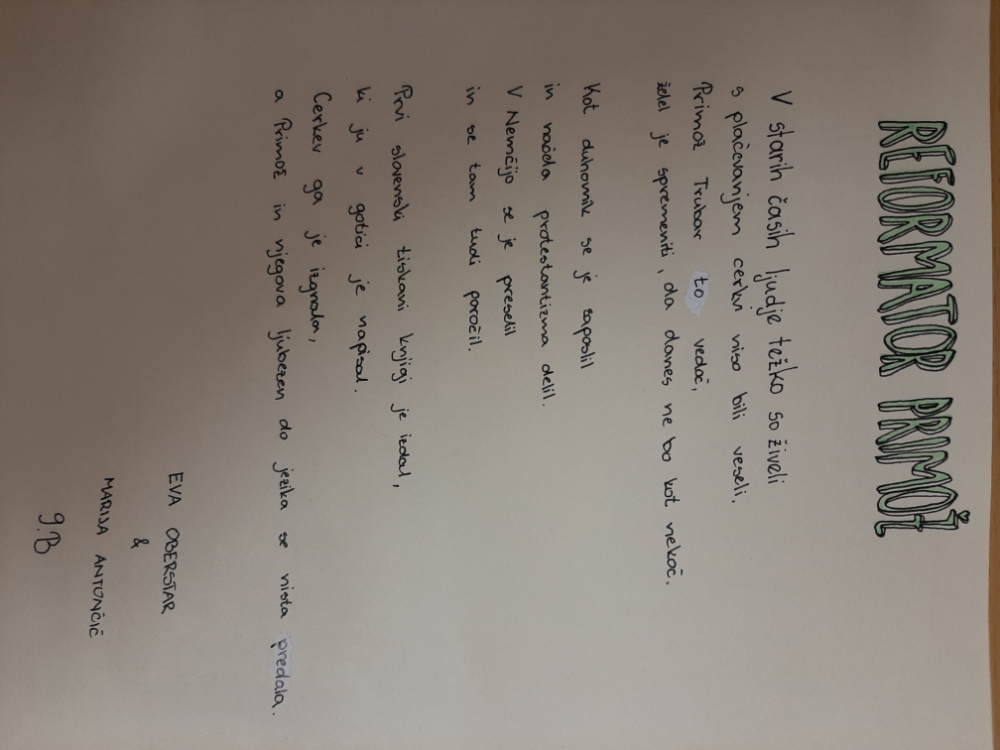 REFORMATOR PRIMOŽ
V starih časih ljudje težko so živeli
s plačevanjem cerkvi niso bili veseli.
Primož Trubar to vedoč,
želel je spremeniti, da danes ne bo kot nekoč.
Kot duhovnik se je zaposlil
in načela protestantizma delil.
V Nemčijo se je preselil
in se tam tudi poročil.
Prvi slovenski tiskani knjigi je izdal,
ki ju v gotici je napisal.
Cerkev ga je izgnala,
a Primož in njegova ljubezen do jezika se nista predala.
EVA OBERSTAR
&
MARIJA ANTONČIČ
9.B